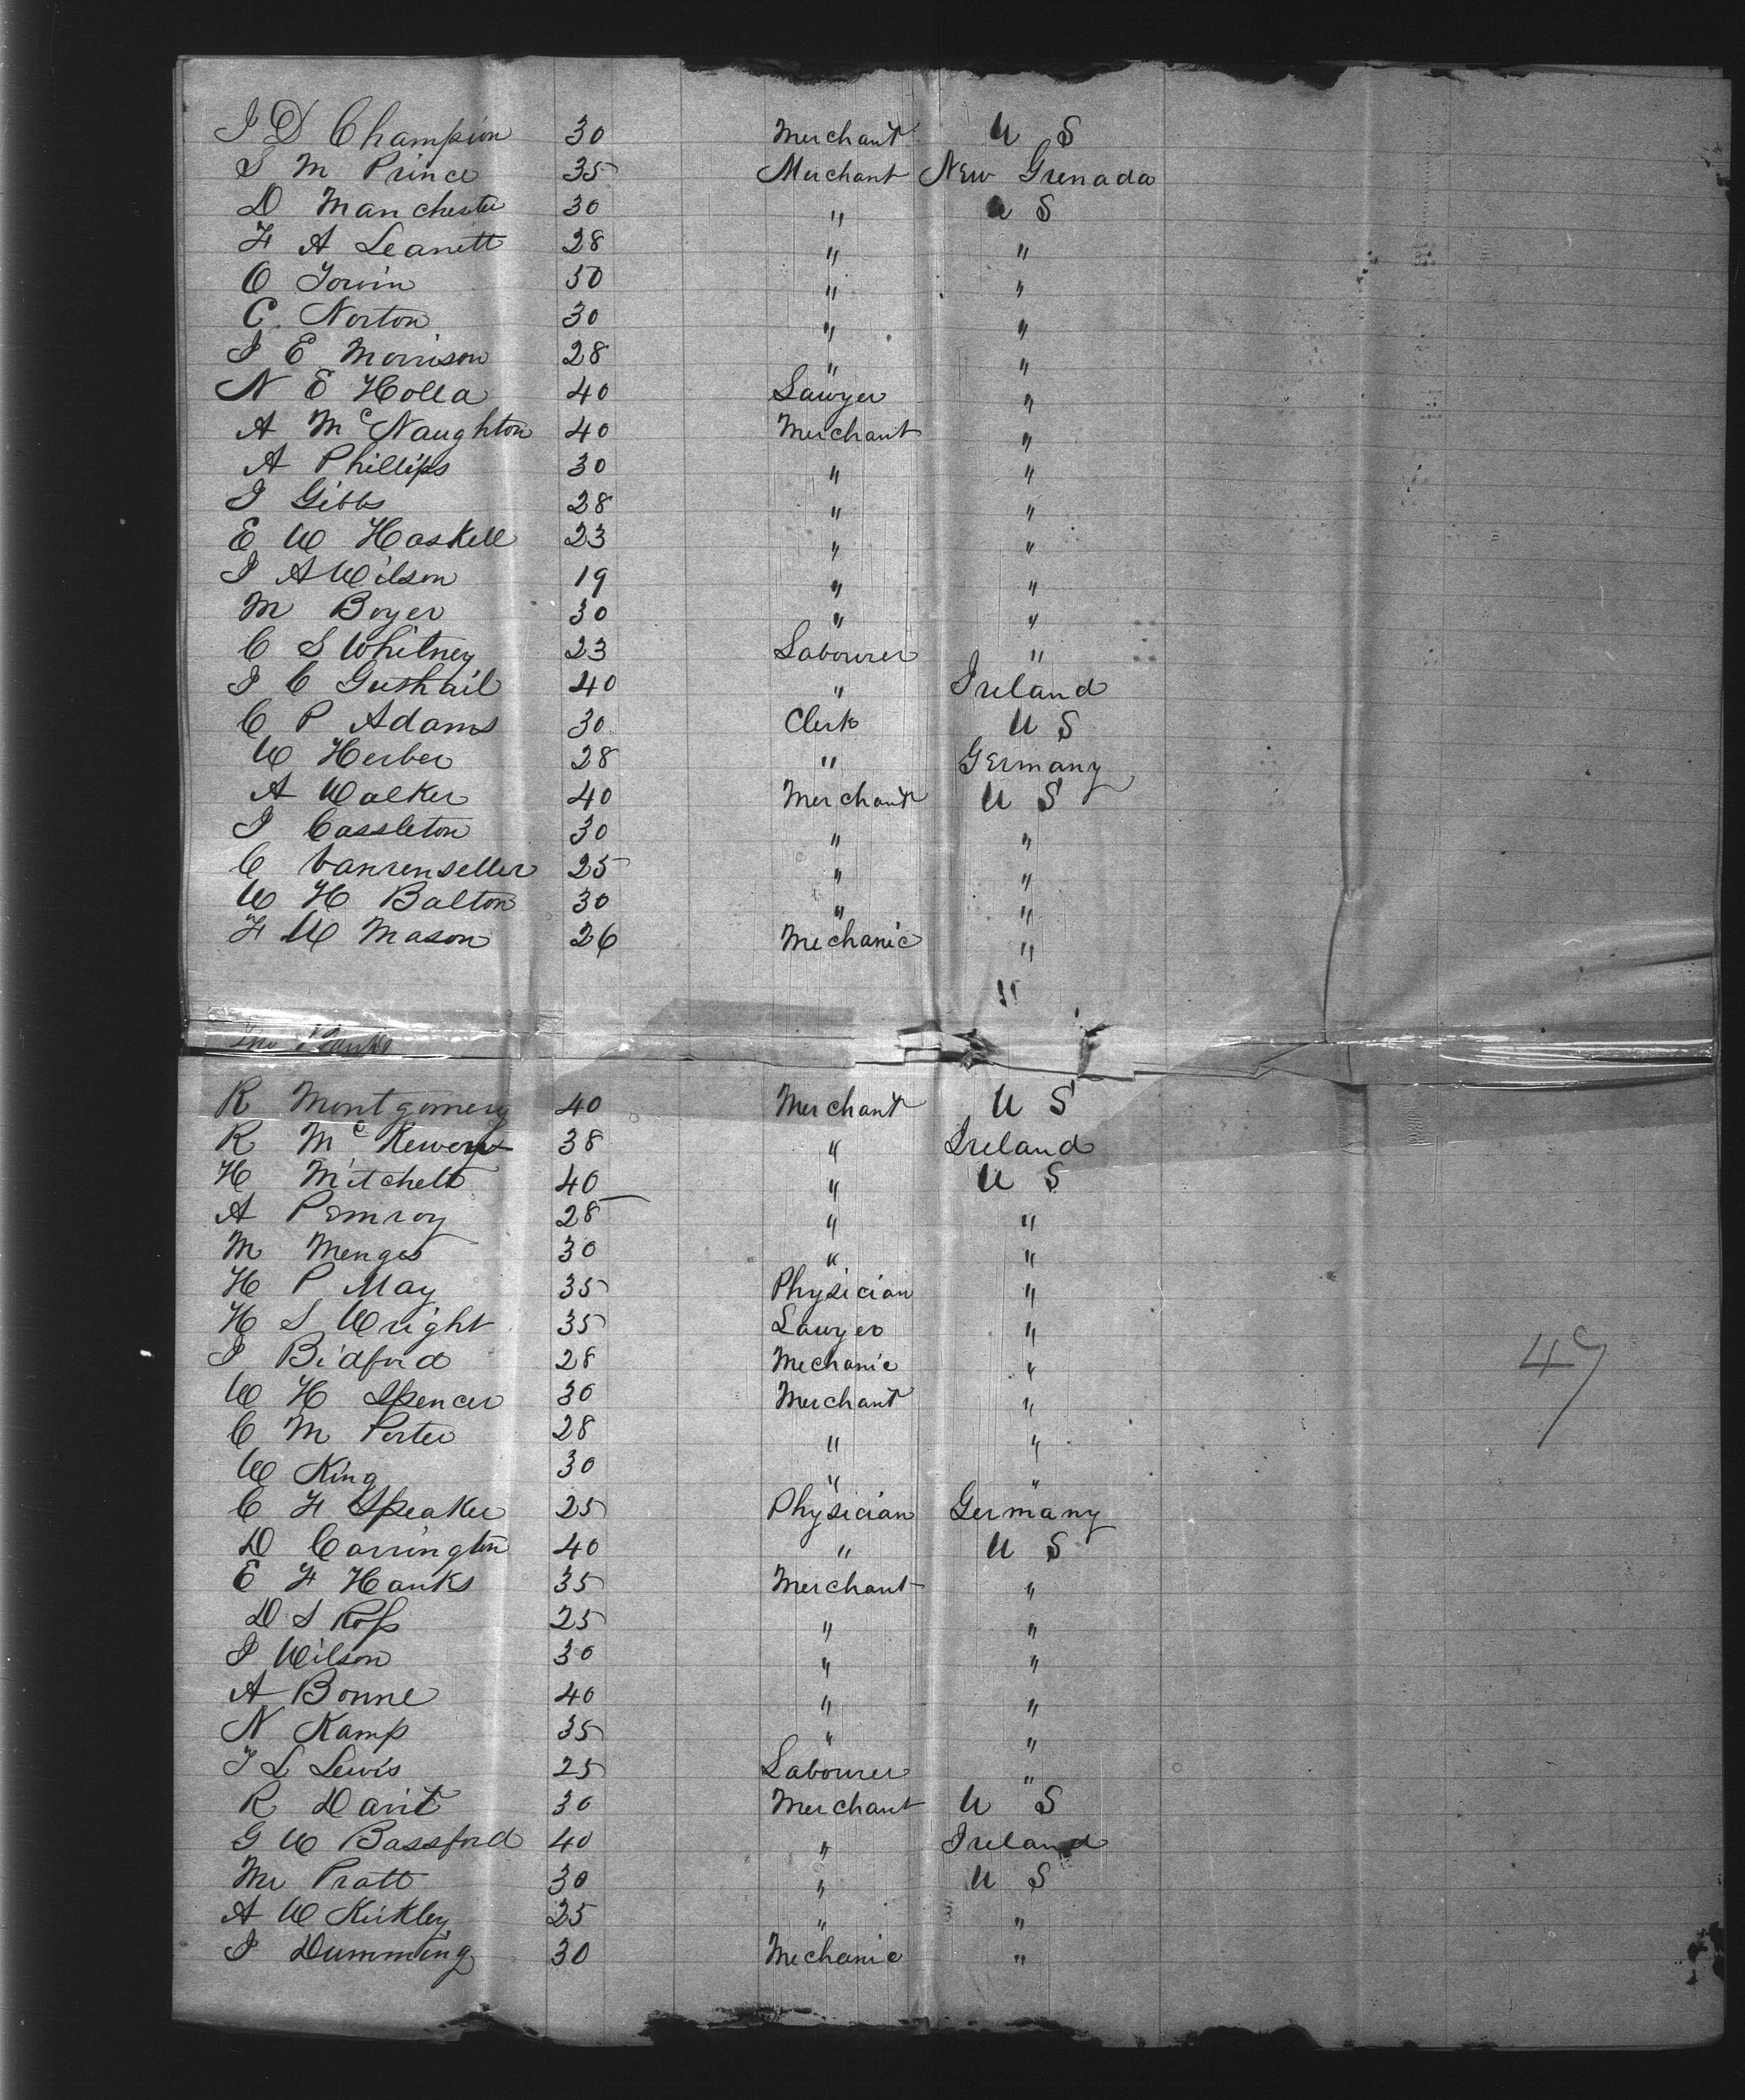 J D Champion 30 Merchant U S
S M Prince 35 Merchant New Grenada
D Manchester 30 " U S
F A Leanett 28 " "
O Irwin 50 " "
C. Norton 30 " "
J E Morrison 28 " "
N E Holla 40 Lawyer "
A McNaughton 40 Merchant "
A Phillips 30 " "
J Gibbs 28 " "
E W Haskell 23 " "
J A Wilson 19 " "
M Boyer 30 " "
C S Whitney 23 Labourer "
J C Gushail 40 " Ireland
C P Adams 30 Clerk U S
W Herber 28 " Germany
A Walker 40 Merchant U S
J Cassleton 30 " "
C Vanrenseller 25 " "
W H Balton 30 " "
F W Mason 26 Mechanic "
"
R Montgomery 40 Merchant U S
R 38 " Ireland
H Mitchell 40 " U S
A Pomroy 28 " "
M Menges 30 " "
H P May 35 Physician "
H S Wright 35 Lawyer "
J Bidford 28 Mechanic "
W H Spencer 30 Merchant "
C M Porter 28 " "
W King 30 " "
C F Speaker 25 Physician Germany
D Carrington 40 " U S
E F Hanks 35 Merchant "
D S Ross 25 " "
J Wilson 30 " "
A Bonne 40 " "
N Kamp 35 " "
T L Lewis 25 Labourer "
R Davit 30 Merchant U S
G W Bassford 40 " Ireland
Mr Pratt 30 " U S
A W Kirkley 25 " "
J Dumming 30 Mechanic "
47